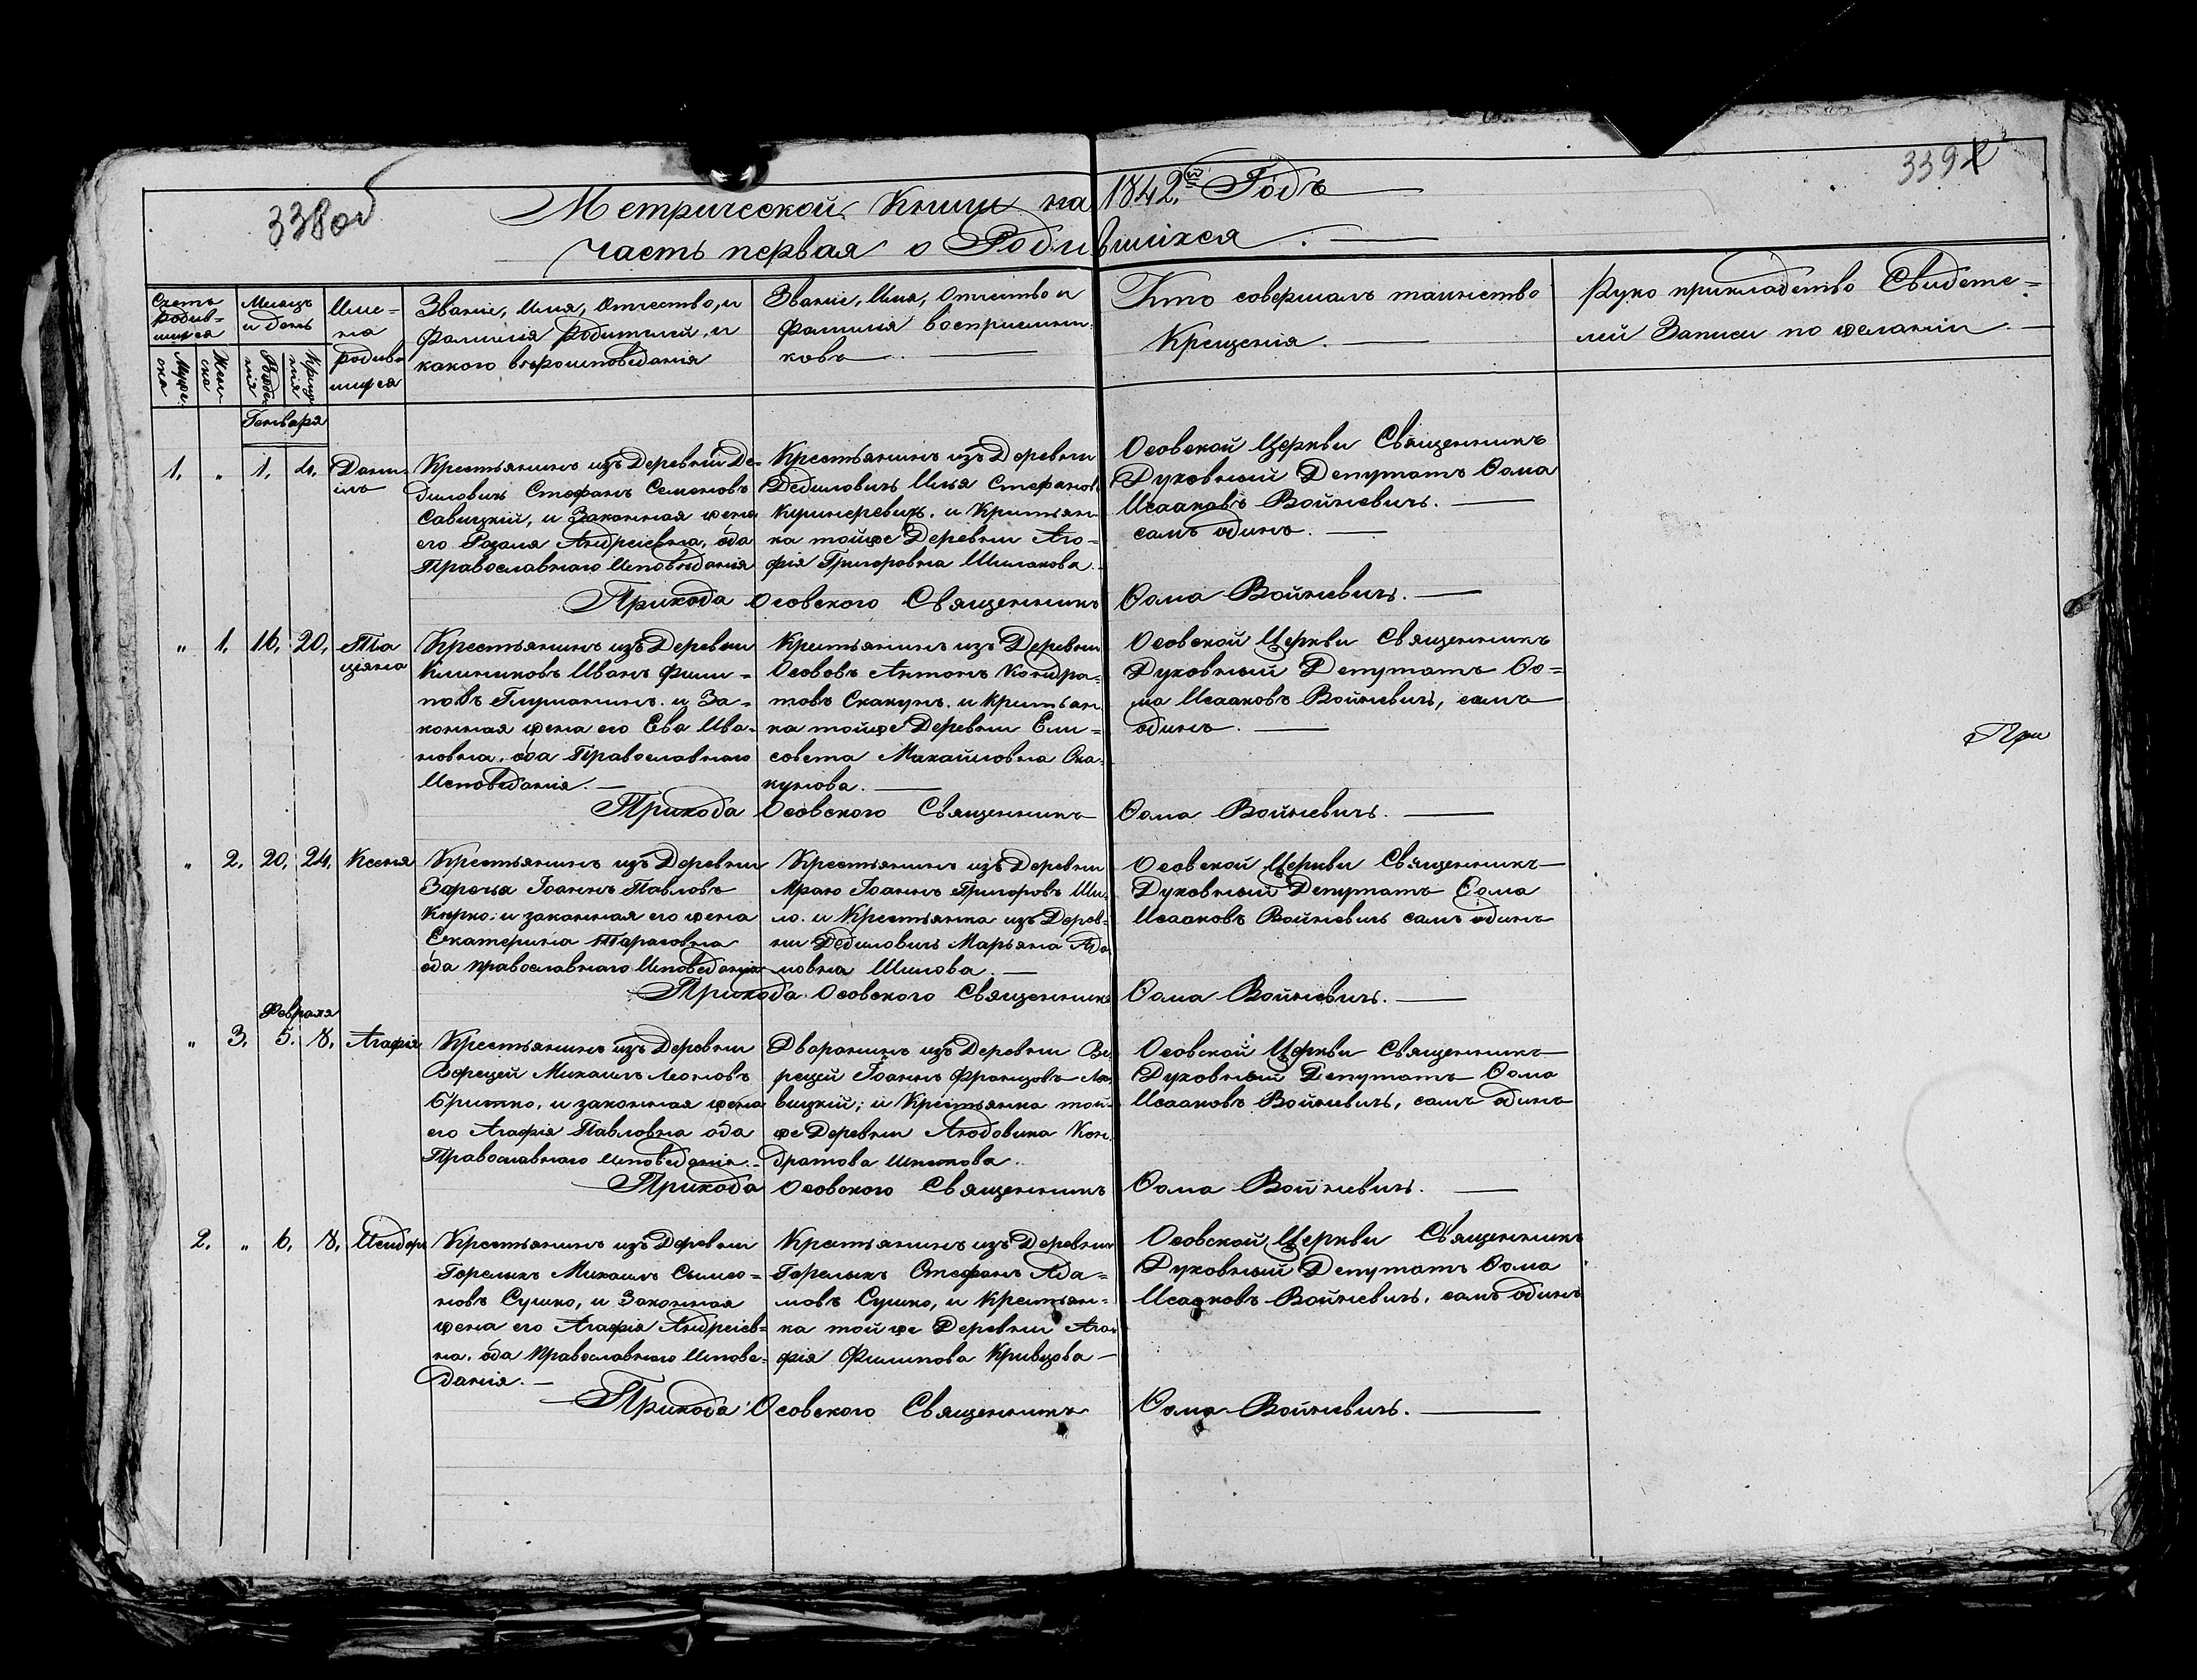 338об
339
Метрической Книги на 1842й Годъ
часть первая о Родившихся.
Счетъ родив-
шихся
Муже.
ска
Жен
ска
Месяцъ
и день
Рожде
нія
Крещ
нія
Име-
на
родив
шихся
Званіе, Имя, Отчество, и
Фамилія Родителей, и
какого вѣроисповеданія
Званіе, Имя, Отчество и
Фамилія восприемни
ковъ
Кто совершалъ таинство
Крещенія.
Руко прикладство Свидете-
лей Записи по желанію.
Генваря
1. „ 1. 4. Дани
илъ
Крестьянинъ изъ Деревни Де-
диловичъ Стефанъ Семеновъ
Савицкій, и Законная жена
его Розалія Андреевна, оба
Православнаго Исповѣданія
Крестьянинъ изъ Деревни
Дедиловичъ Илья Стефановъ
Кушнеревичъ. и Крестьян
ка тойже Деревни Ага-
фія Григоровна
Осовской Церкви Священникъ
Духовный Депутатъ Ѳома
Исааковъ Войневичъ.
самъ одинъ.
Прихода Осовского Священникъ Ѳома Войневичъ.
„ 1. 16. 20. Та
ціяна
Крестьянинъ изъ Деревни
Клинниковъ Иванъ Фили-
повъ и За-
конная жена его Ева Ива-
новна, оба Православнаго
Исповеданія.
Крестьянинъ изъ Деревни
Осовъ Антонъ Кондра-
товъ Скакунъ. и Крестьян
ка тойже Деревни Ели-
совета Михайловна Ска-
кунова.
Осовской Церкви Священникъ
Духовный Депутатъ Ѳо-
ма Исааковъ Войневичъ, самъ
одинъ.
При
Прихода Осовского Священникъ Ѳома Войневичъ.
„ 2. 20. 24. Ксенія
Крестьянинъ изъ Деревни
Заречья Іоаннъ Павловъ
Кирко. и законная его жена
Екатерина Тарасовна
оба православнаго Исповеданія
Крестьянинъ изъ Деревни
Мраю Іоаннъ Григоровъ Ши
ло. и Крестьянка изъ Дерев-
ни Дедиловичъ Марьяна Ада
мовна Шилова.
Осовской Церкви Священникъ
Духовный Депутатъ Ѳома
Исааковъ Войневичъ самъ одинъ
Прихода Осовского Священникъ Ѳома Войневичъ.
Февраля
„ 3. 5. 8. Агафія
Крестьянинъ изъ Деревни
Верецей Михаилъ Леоновъ
Гришко, и законная жена
его Агафія Павловна оба
Православнаго исповеданія.
Дворянинъ изъ Деревни Ве
рецей Іоаннъ Францовъ
вицкій; и Крестьянка той-
же Деревни Людовика Кон
дратова
Осовской Церкви Священникъ
Духовный Депутатъ Ѳома
Исааковъ Войневичъ, самъ одинъ
Прихода Осовского Священникъ Ѳома Войневичъ.
2. „ 6. 8. Исидоръ
Крестьянинъ изъ Деревни
Горелыхъ Михаилъ Сымео-
новъ Сушко, и Законная
жена его Агафія Андреев-
на. оба Православнаго Испове-
данія.
Крестьянинъ изъ Деревни
Горелыхъ Стефанъ Ада-
мовъ Сушко, и Крестьян-
ка той же Деревни Ага
фія Филипова Кривцова
Осовской Церкви Священникъ
Духовный Депутатъ Ѳома
Исааковъ Войневичъ, самъ одинъ
Прихода Осовского Священникъ Ѳома Войневичъ.